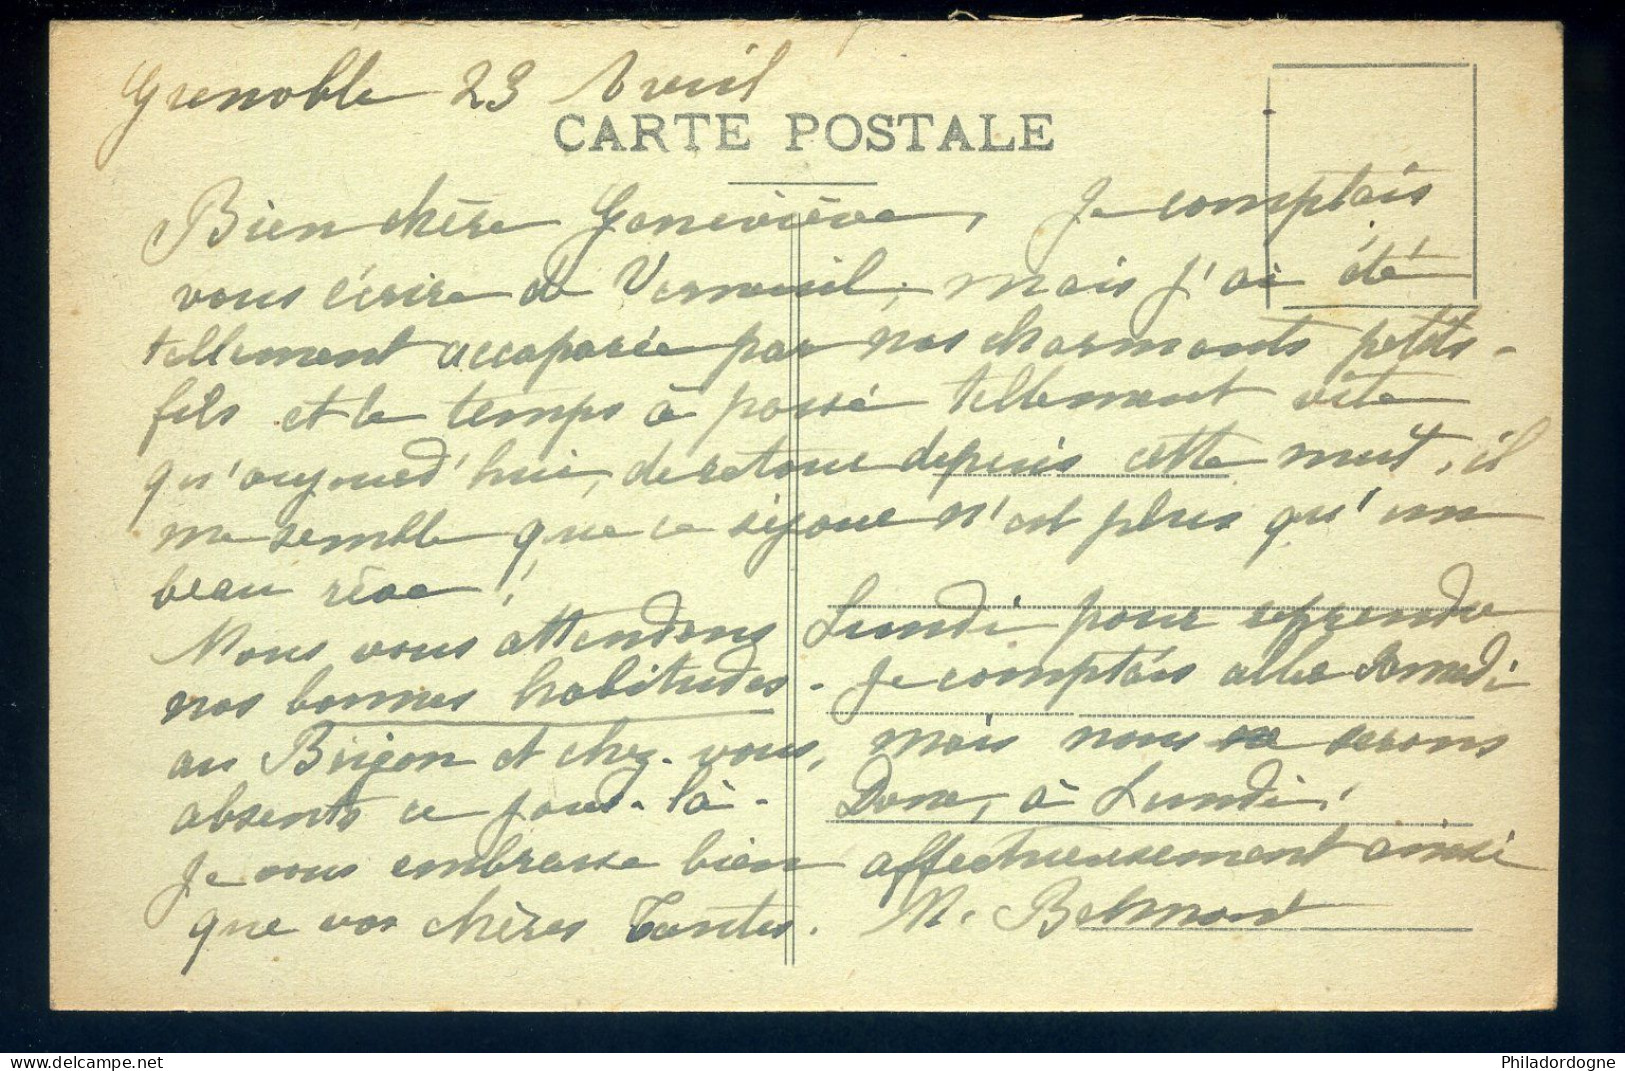 Grenoble 23 Avril
CARTE POSTALE
Bien chère Geneviève, Je comptais
vous écrire de Verneuil, mais j'ai été
tellement accaparée par nos charmants petits-
fils et le temps à passé tellement vite
qu'aujourd'hui, de retour depuis cette nuit, il
me semble que ce séjour n'est plus qu'un
beau rêve!
Nous vous attendons Lundi pour reprendre
nos bonnes habitudes. Je comptais aller Samedi
au et chez-vous, mais nous serons
absents ce jour-là. Donc, à Lundi!
Je vous embrasse bien affectueusement ainsi
que vos chères Tantes. M. Belmont
Philadordogne